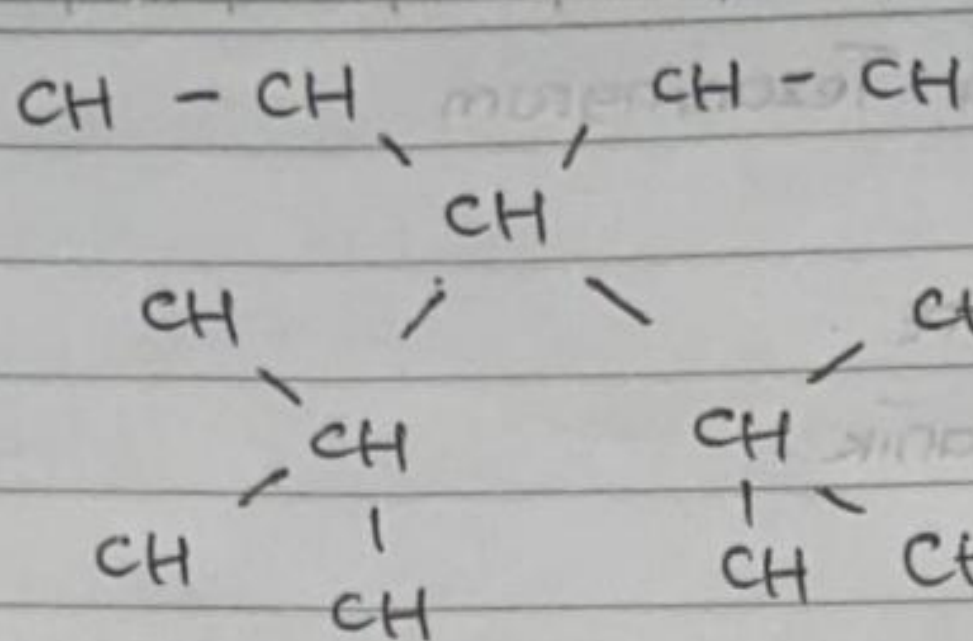 CH - CH CH - CH
CH
CH
CH CH
CH CH
CH